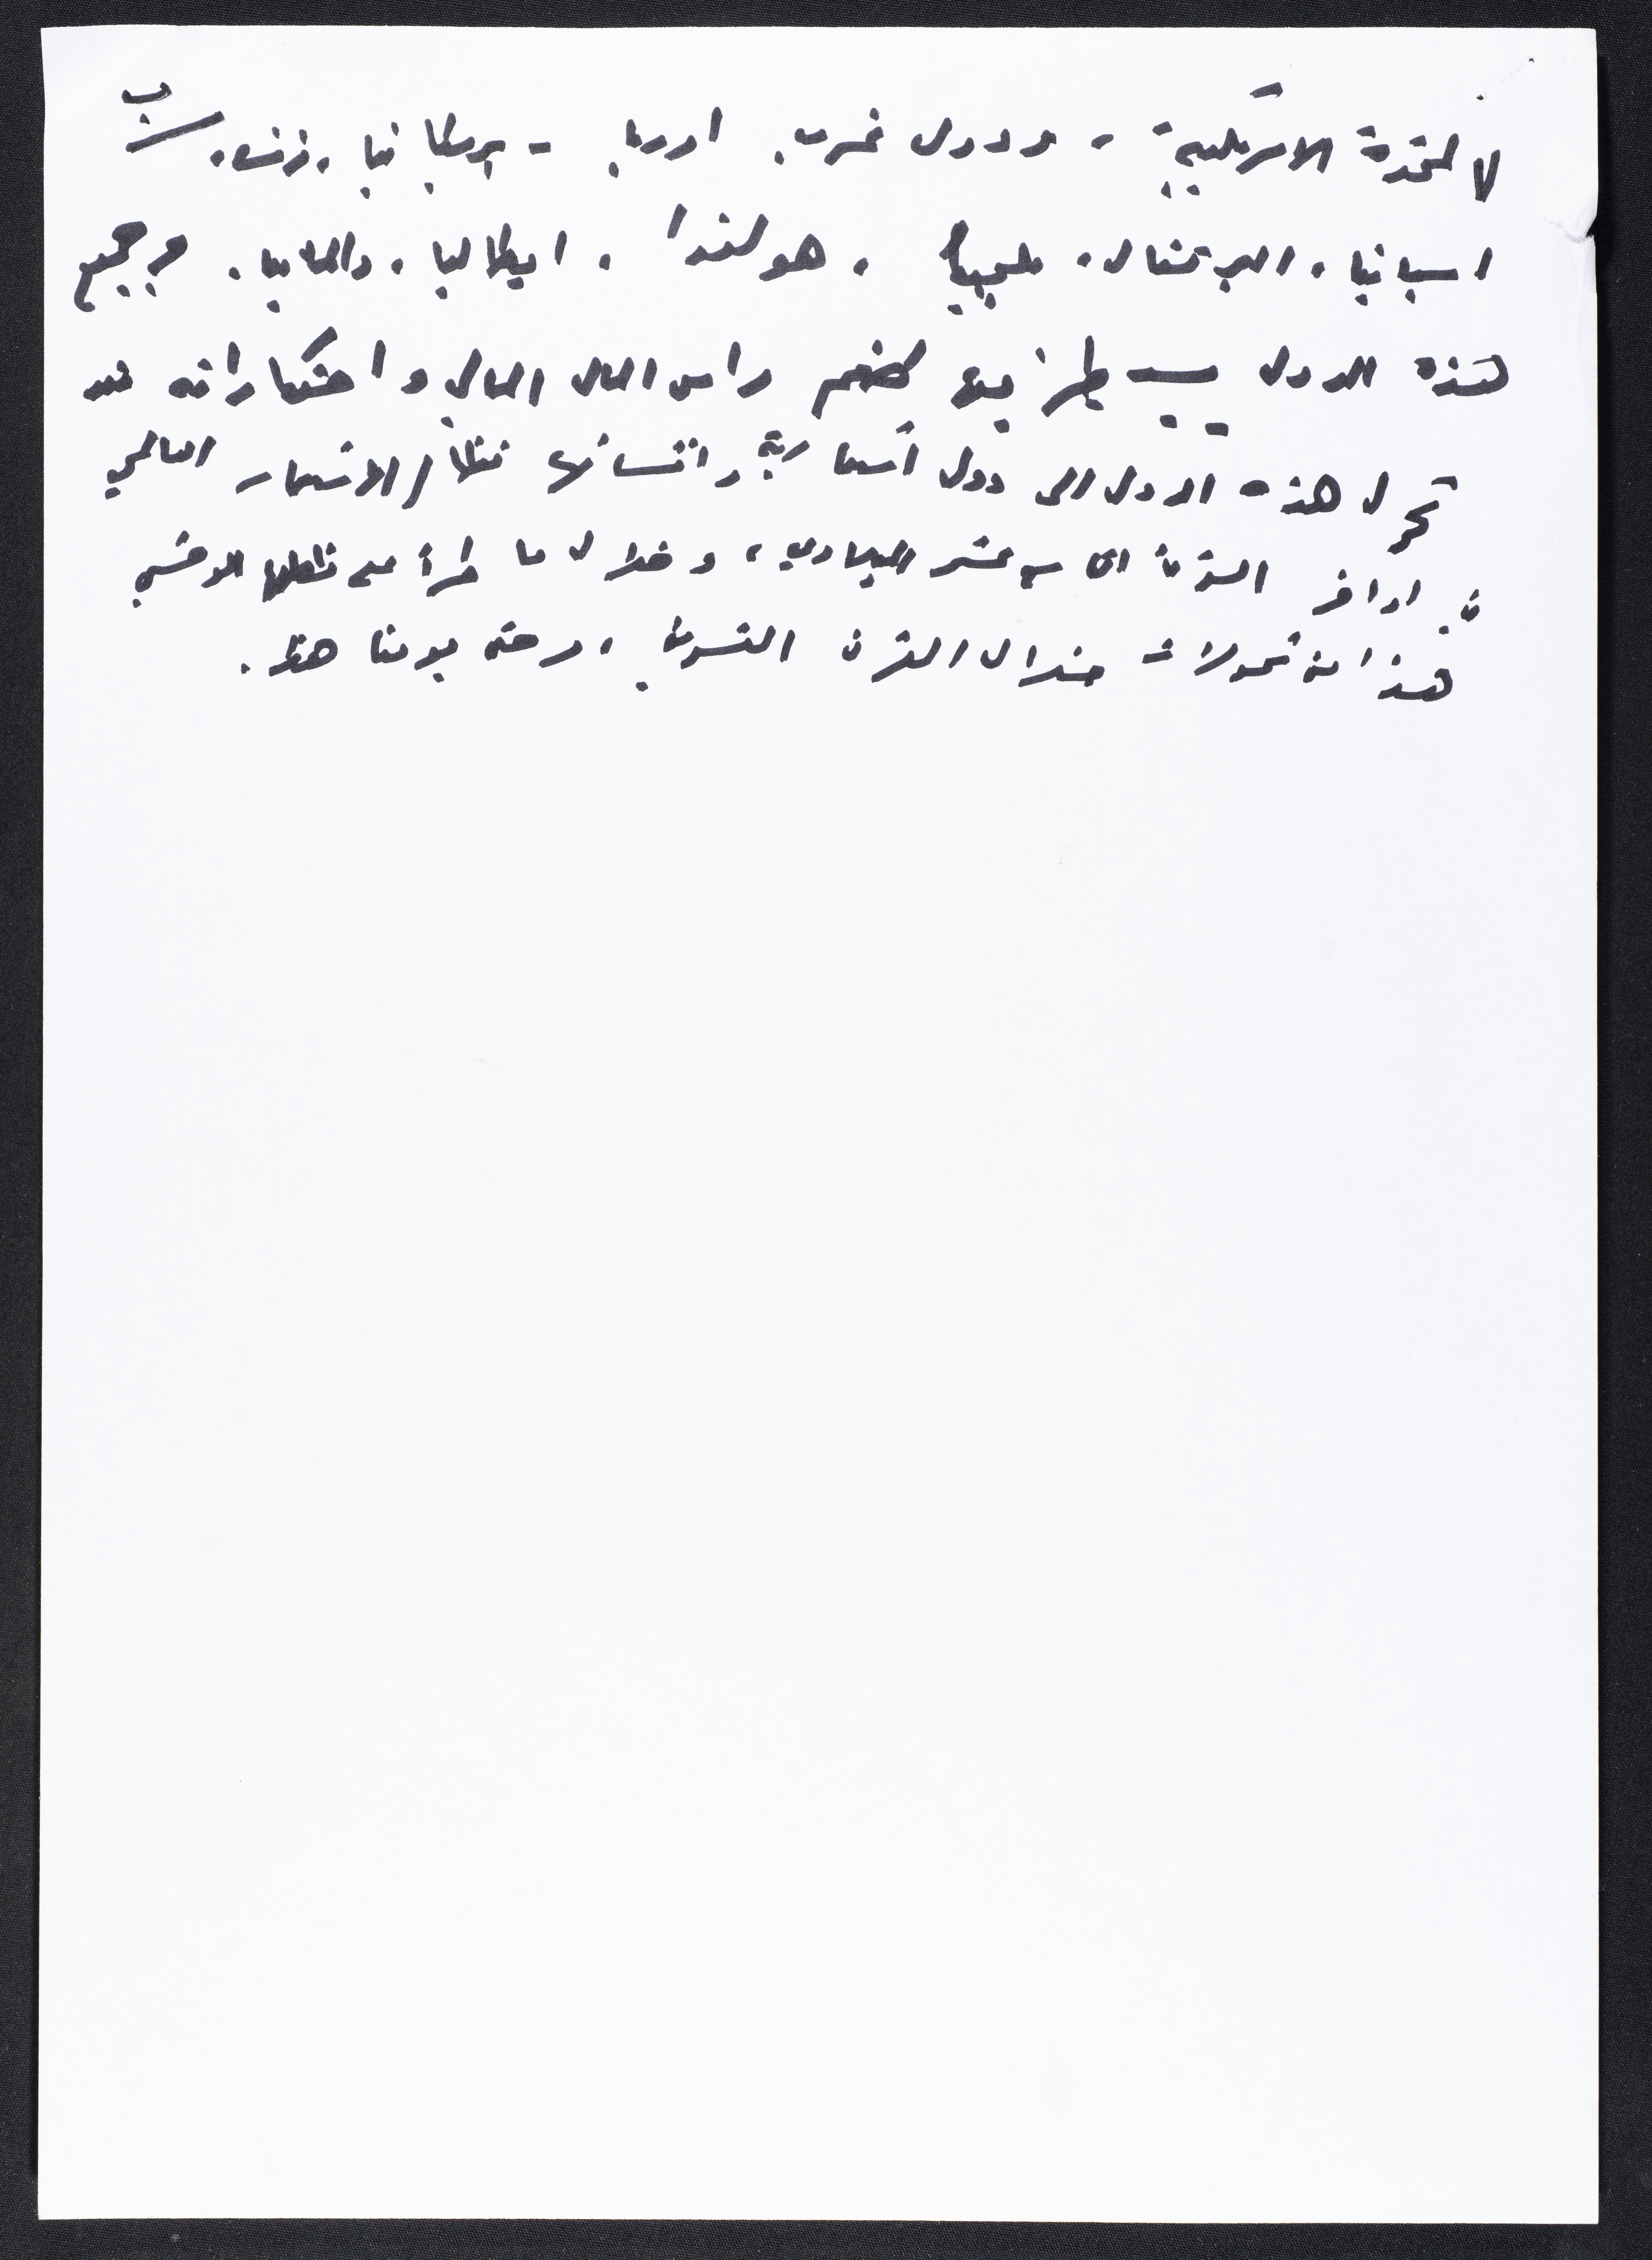 ب
المتحدة الامريكية، ودول غرب اوربا - بريطانيا، فرنسا،
اسبانيا، البرتغال، بلجيكا، هولندا، ايطاليا، والمانيا. وجميع
هذه الدول يسيطر فيها راس المال المالي واحتكاراته منذ
تحول هذه الدول الى دول استعمارية وانشائها نظام الاستعمار العالمي
في اواخر القرن التاسع عشر الميلادي، وخلال ما طرأ على نظامها الوحشي
هذا من تحولات خلال القرن العشرين، وحتى يومنا هذا.